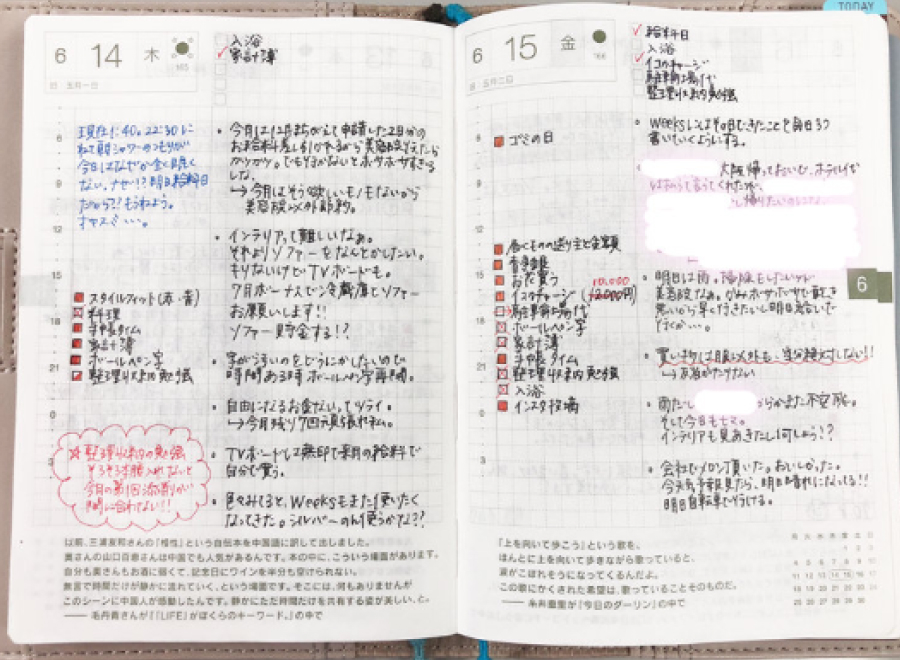 6 14 木
165
旧 五月一日
入浴
家計簿
現在1:40。22:30に
ねて朝シャワーのつもりが
今日はなぜか全く眠く
ない。ナゼ!?明日給料日
だから?!もうねよう。
スタイルフィット(赤・青)
料理
手帳タイム
家計簿
ボールペン字
整理収納勉強
整理収納の勉強
そろそろ本腰入れないと
今月の第1回添削が
間に合わない!!
・今月は12月まちがえて申請した2日分の
お給料差し引かれるから美容院考えたら
かつかつ。でも行かないとボサボサすぎる
しな。
→今月はそう欲しいモノもないから
美容院以外節約。
・インテリアって難しいなぁ。
それよりソファーをなんとかしたい。
キリないけどTVボードも。
7月ボーナスで冷蔵庫とソファー
お願いします!!
ソファー貯金する!?
・字がうすいのをどうにかしたいので
時間ある時ボールペン字再開。
・自由になるお金ないってツライ。
→今月残り
・TVボードは無印で来月の給料で
自分で買う。
・色々みてると、Weeksもまた使いたく
なってきた。シルバーのん使うかな??
以前、三浦友和さんの『相性』という自伝本を中国語に訳して出しました。
奥さんの山口百恵さんは中国でも人気があるんです。本の中に、こういう場面があります。
自分も奥さんもお酒に弱くて、記念日にワインを半分も空けられない。
無言で時間だけが静かに流れていく、という場面です。そこには、何もありませんが
このシーンに中国人が感動したんです。静かにただ時間だけを共有する姿が美しい、と。
── 毛丹青さんが『「LIFE」がぼくらのキーワード。』の中で
TODAY
6 15 金
166
旧 五月二日
給料日
入浴
イコカチャージ
駐輪場代
整理収納勉強
ゴミの日
届くものの送り主と金額
お花買う
イコカチャージ(12000円)
10,000
駐輪場代
ボールペン字
家計簿
手帳タイム
整理収納勉強
入浴
インスタ投稿
・Weeksにはその日できたことを毎日3つ
書いていくようにする。
大阪帰っておいで、ホテル代
はらうって言うてくれたが、
し帰りたいのになぁ
・明日は雨。掃除もしたいけど
・買い物は服以外も、当分絶対しない!!
・雨だし
からかまた不安感。
そして今日もヒマ。
インテリアも見あきたし何しよう!?
・会社でメロン頂いた。おいしかった。
今天気予報見たら、明日晴れになってる!!
明日自転車で行ける。
6
『上を向いて歩こう』という歌を、
ほんとに上を向いて歩きながら歌っていると、
涙がこぼれそうになってくるんだよ。
この歌にかくされた希望は、歌っていることそのものだ。
── 糸井重里が『今日のダーリン』の中で
月 火 水 木 金 土 日
1 2 3
4 5 6 7 8 9 10
11 12 13 14 15 16 17
18 19 20 21 22 23 24
25 26 27 28 29 30